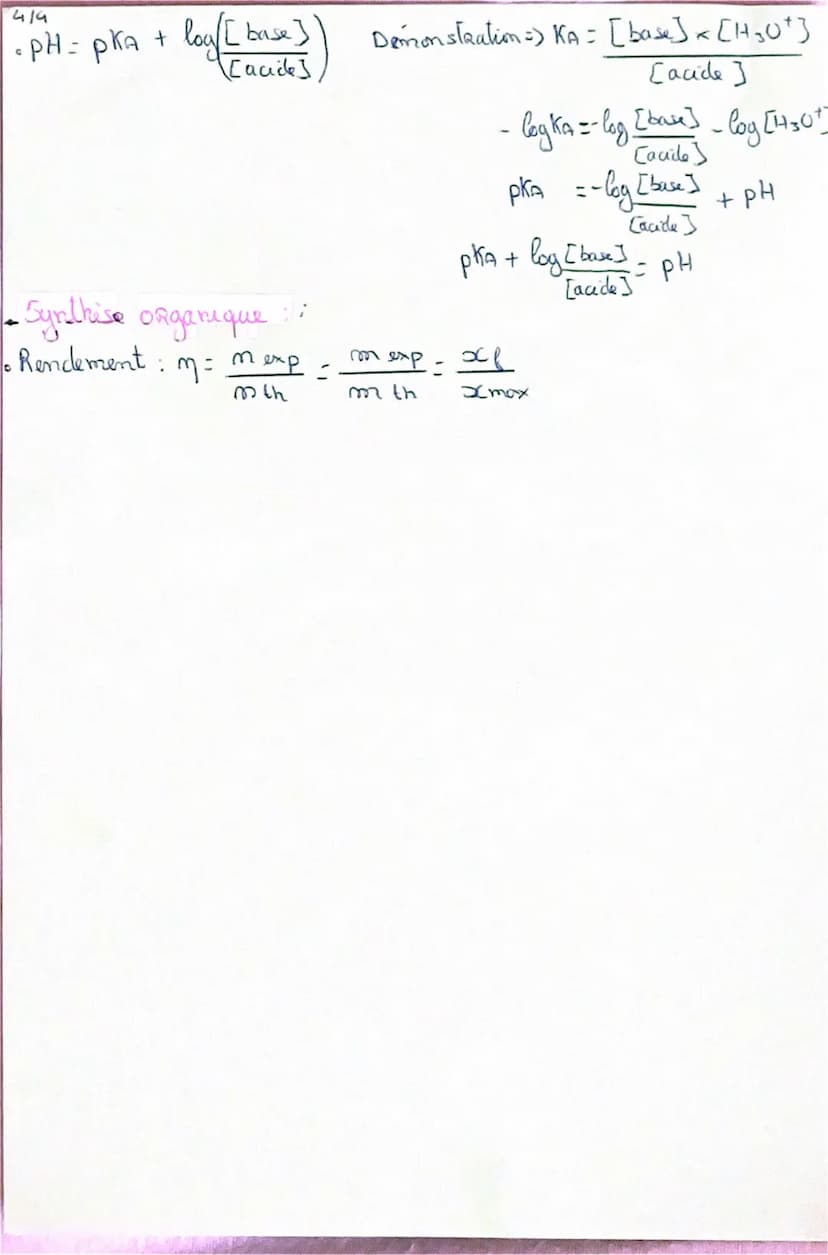 4/4
• pH = pKA + log([base]/[acide]) Démonstration => KA = [base] × [H3O+]/[acide]
- log KA = - log [base]/[acide] - log [H3O+]
pKA = - log [base]/[acide] + pH
pKA + log [base]/[acide] = pH
- Synthèse organique :
• Rendement : η = n exp/n th = m exp/m th = xf/xmax